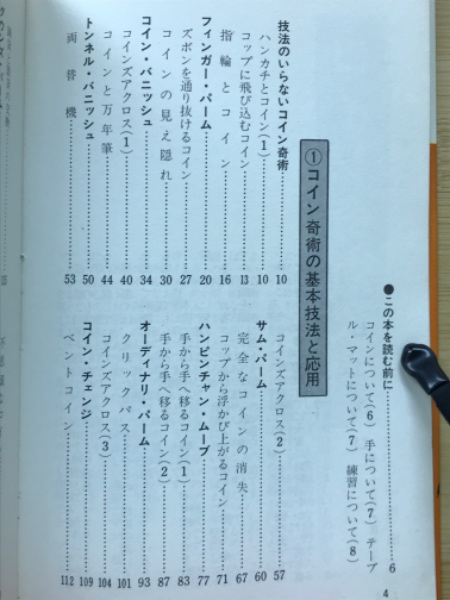 ●この本を読む前に……6
コインについて(6)　手について(7)　テーブ
ル・マットについて(7)　練習について(8)
①コイン奇術の基本技法と応用
技法のいらないコイン奇術……10
ハンカチとコイン(1)……10
コップに飛び込むコイン……13
指輪とコイン……16
フィンガー・パーム……20
ズボンを通り抜けるコイン……27
コインの見え隠れ……30
コイン・バニッシュ……34
コインズアクロス(1)……40
コインと万年筆……44
トンネル・バニッシュ……50
両替機……53
コインズアクロス(2)……57
サム・パーム……60
完全なコインの消失……67
コップから浮かび上がるコイン……71
ハンピンチャン・ムーブ……77
手から手へ移るコイン(1)……83
手から手へ移るコイン(2)……87
オーディナリ・パーム……93
クリックパス……101
コインズアクロス(3)……104
コイン・チェンジ……109
ベントコイン……112
4